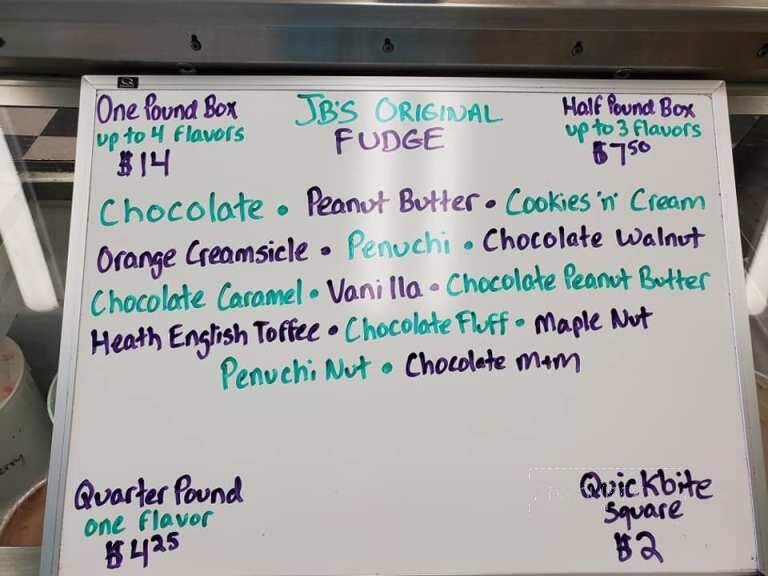 One Pound Box
up to 4 flavors
$14
JB'S ORIGINAL
FUDGE
Half Pound Box
up to 3 flavors
$7⁵⁰
Chocolate • Peanut Butter • Cookies 'n' Cream
Orange Creamsicle • Penuchi • Chocolate Walnut
Chocolate Caramel • Vanilla • Chocolate Peanut Butter
Heath English Toffee • Chocolate Fluff • Maple Nut
Penuchi Nut • Chocolate m+m
Quarter Pound
one flavor
$4²⁵
Quickbite
Square
$2